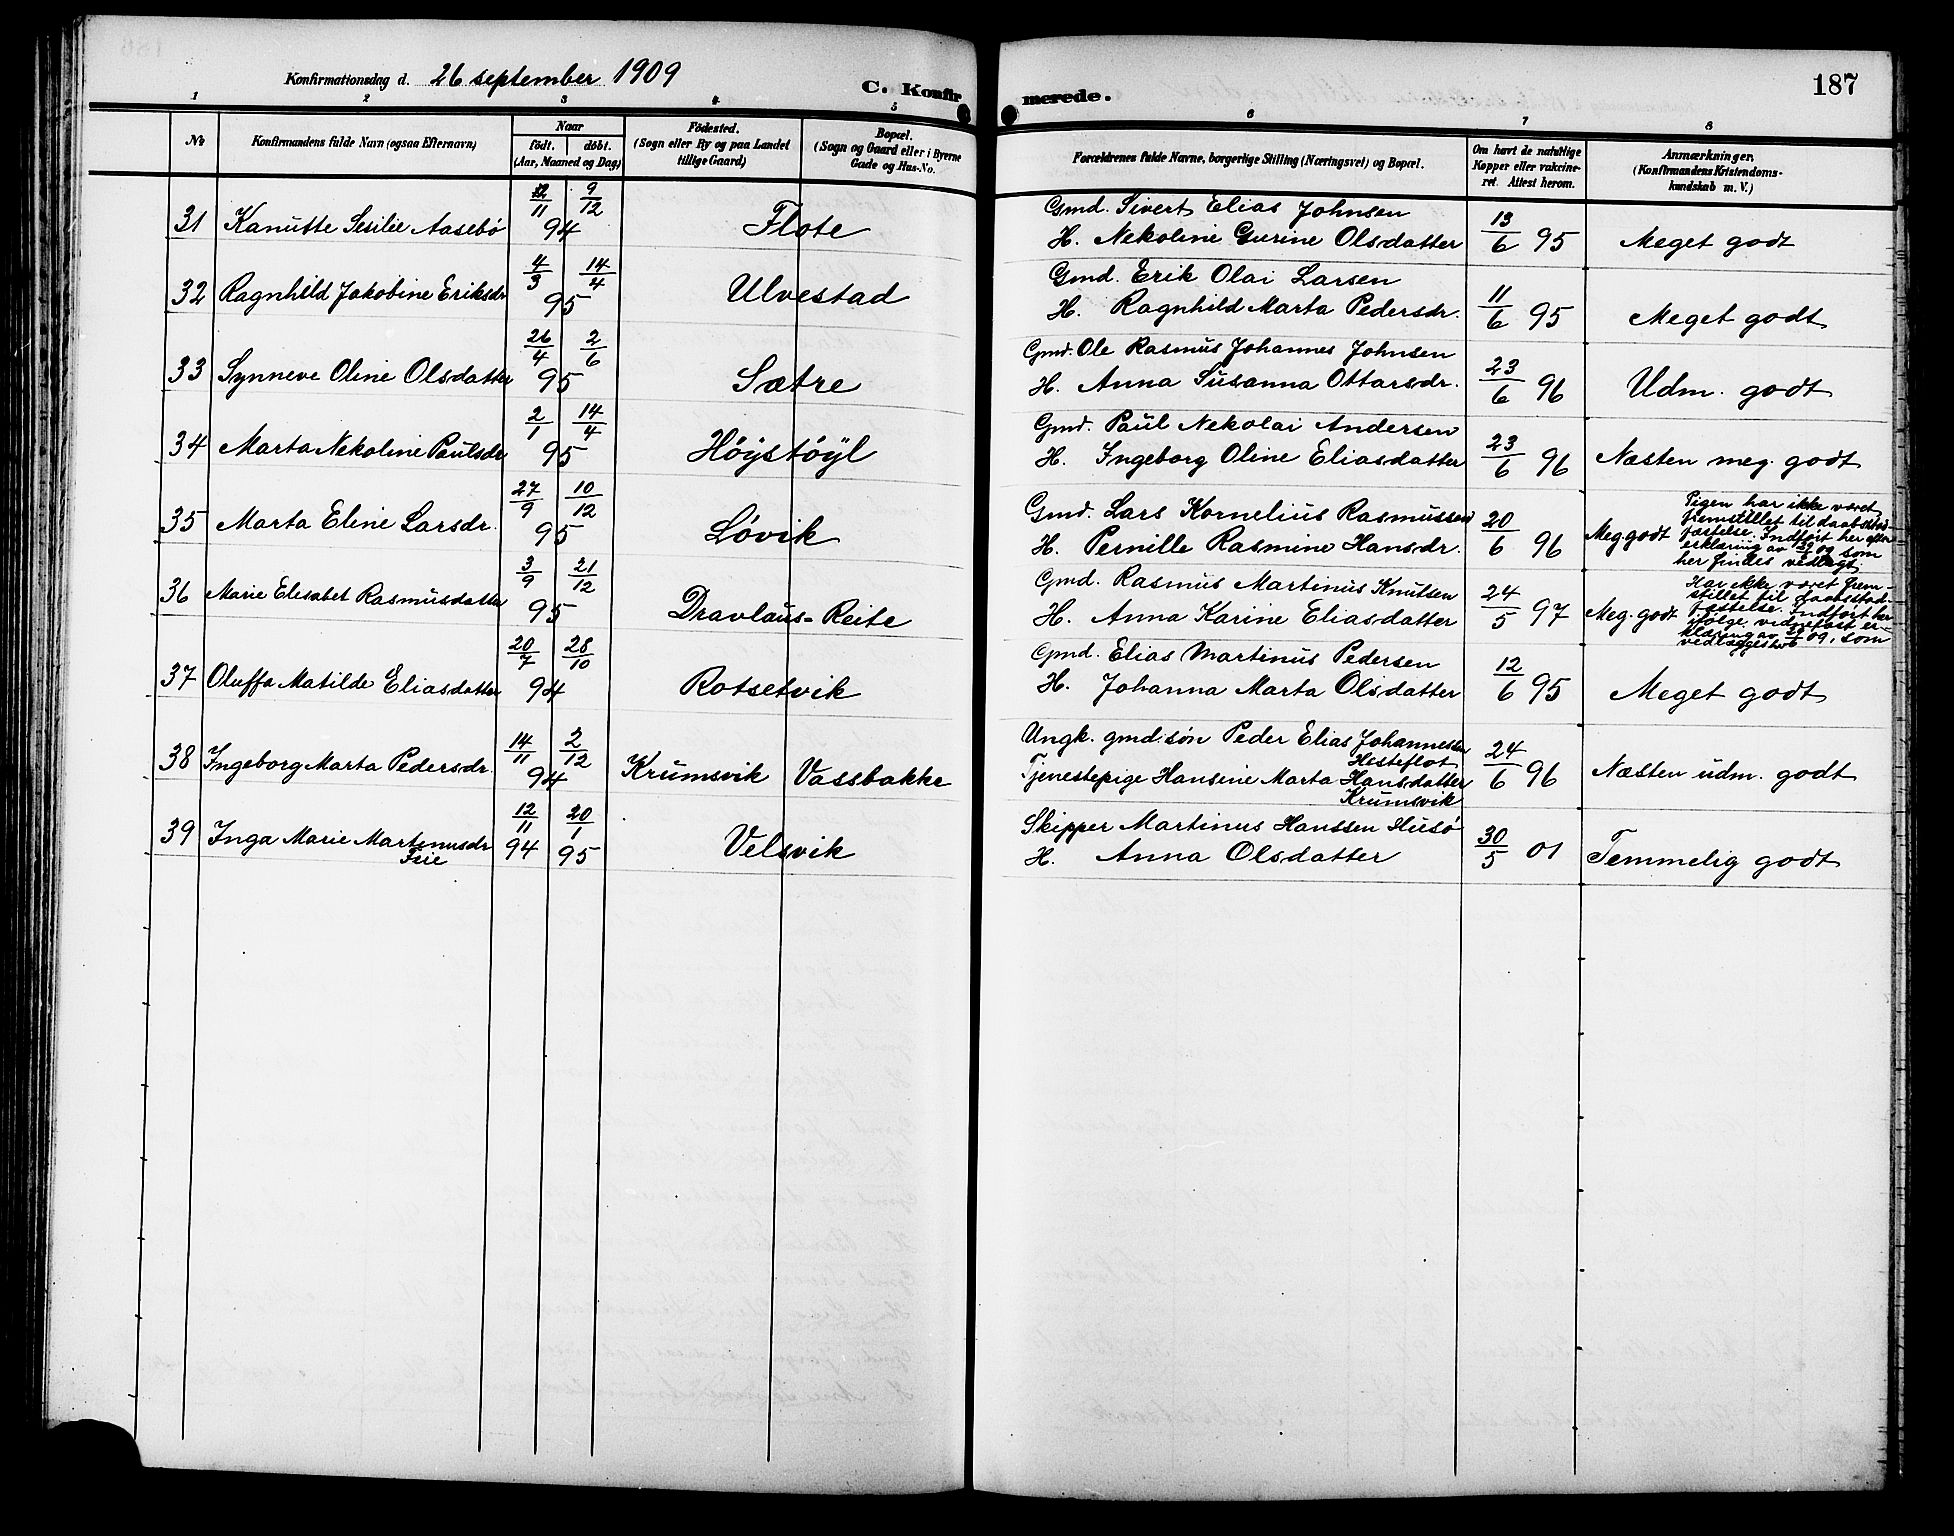 Konfirmationsdag d. 26 september 1909
C. Konfirmerede.
187
1 2 3 4 5 6 7 8
No
Konfirmandens fulde Navn (ogsaa Efternavn)
Naar
födt. döbt.
(Aar, Maaned og Dag)
Födested.
(Sogn eller By og paa Landet
tillige Gaard)
Bopæl.
(Sogn og Gaard eller i Byerne
Gade og Hus-No.
Forældrenes fulde Navne, borgerlige Stilling (Næringsvei) og Bopæl.
Om havt de naturlige
Kopper eller vakcine-
ret. Attest herom.
Anmærkninger.
(Konfirmandens Kristendoms-
kundskab m. V.)
31 Kanutte Sesilie Aasebö 12/11 94 9/12 Flote
Gmd. Sivert Elias Johnsen
H. Nekoline Gurine Olsdatter 13/6 95 Meget godt
32 Ragnhild Jakobine Eriksdr 4/3 14/4 95 Ulvestad
Gmd. Erik Olai Larsen
H. Ragnhild Marta Pedersdr. 11/6 95 Meget godt
33 Synneve Oline Olsdatter 26/4 2/6 95 Sætre
Gmd. Ole Rasmus Johannes Johnsen
H. Anna Susanna Ottarsdr. 23/6 96 Udm. godt
34 Marta Nekoline Paulsdr 2/1 14/4 95 Höystöyl
Gmd. Paul Nekolai Andersen
H. Ingeborg Oline Eliasdatter 23/6 96 Næsten meg. godt
35 Marta Eline Larsdr. 27/9 10/12 95 Lövik
Gmd. Lars Kornelius Rasmussen
H. Pernille Rasmine Hansdr. 20/6 96 Meg. godt
Pigen har ikke været
fremstillet til daabsstad-
fæstelse. Indfört her efter
erklæring av 09 som
her findes vedlagt.
36 Marie Elisabet Rasmusdatter 3/9 21/12 95 Dravlaus-Reite
Gmd. Rasmus Martinus Knutsen
H. Anna Karine Eliasdatter 24/5 97 Meg. godt
Har ikke været frem-
stillet til daabsstad-
fæstelse. Indfört her
ifölge vidnefast er-
klæring av 09, som
vedlægges
37 Oluffa Matilde Eliasdatter 20/7 28/10 94 Rotsetvik
Gmd. Elias Martinus Pedersen
H. Johanna Marta Olsdatter 12/6 95 Meget godt
38 Ingeborg Marta Pedersdr. 14/11 2/12 94 Krumsvik Vassbakke
Ungk. gmd.sön Peder Elias Johannessen
Histeflot
Tjenestepige Hansine Marta Hansdatter
Krumsvik 24/6 96 Næsten udm. godt
39 Inga Marie Martinusdr 12/11 94 20/1 95 Velsvik
Frie
Skipper Martinus Hanssen Husö
H. Anna Olsdatter 30/5 01 Temmelig godt